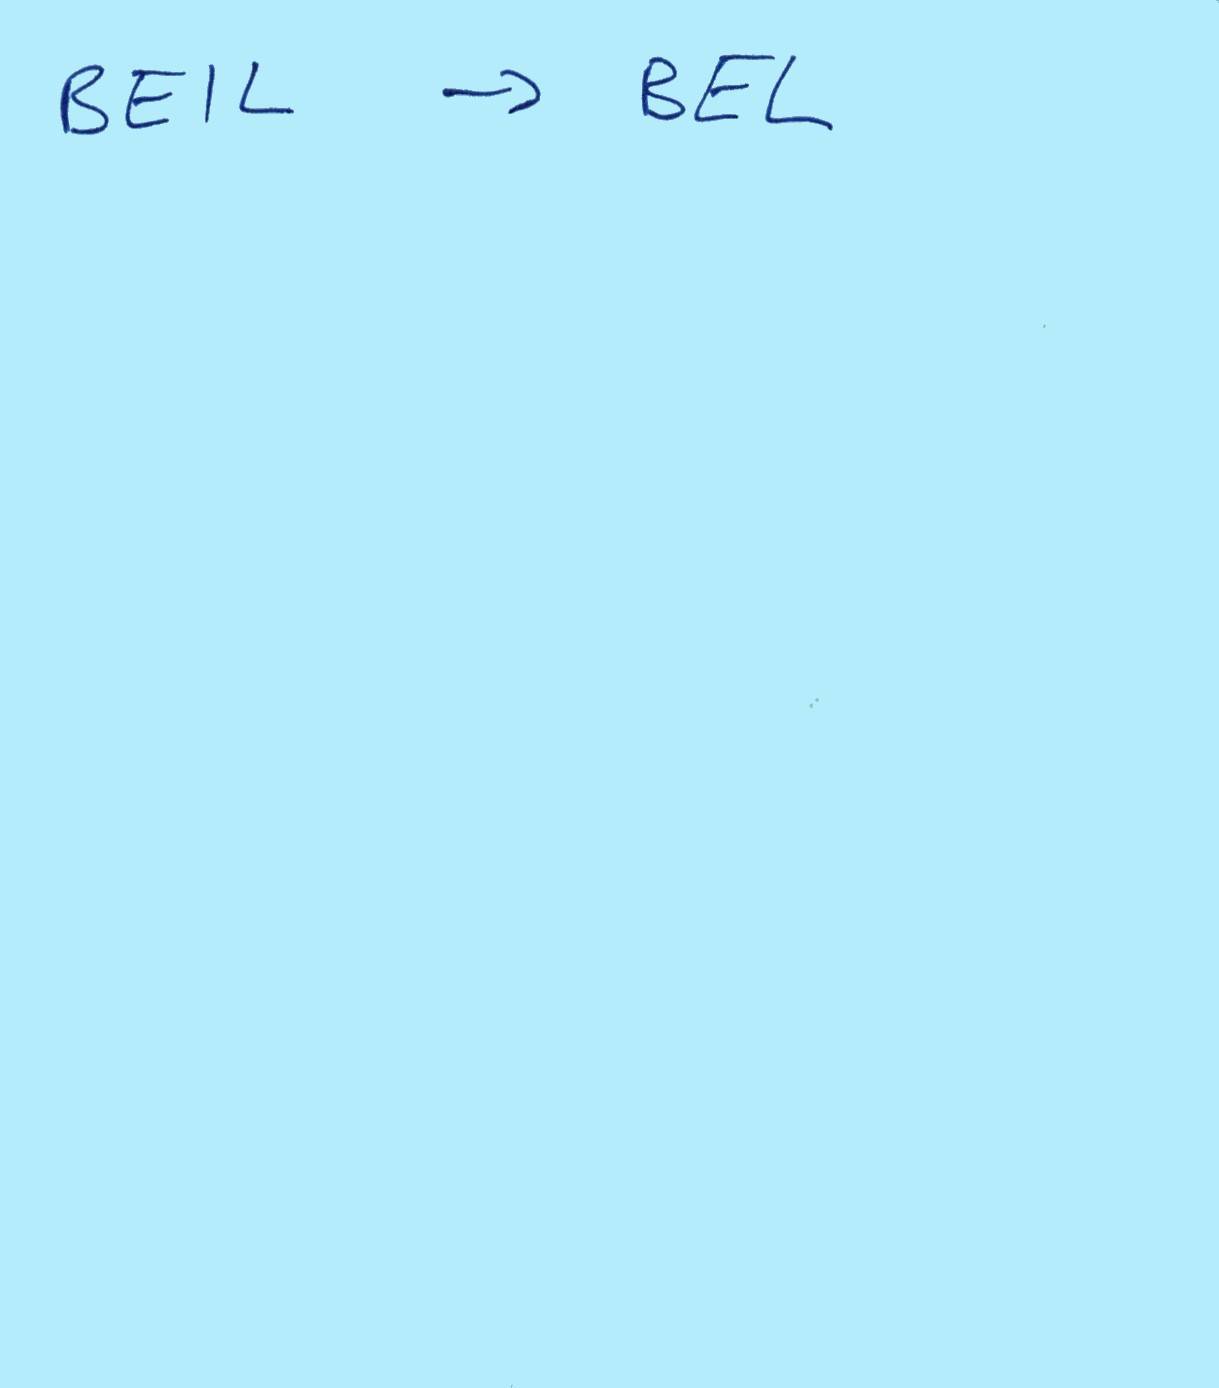 BEIL → BEL